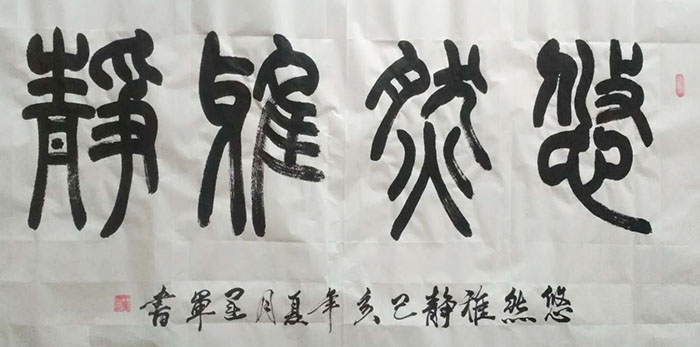 悠然雅靜
悠然雅静己亥年夏月星軍書